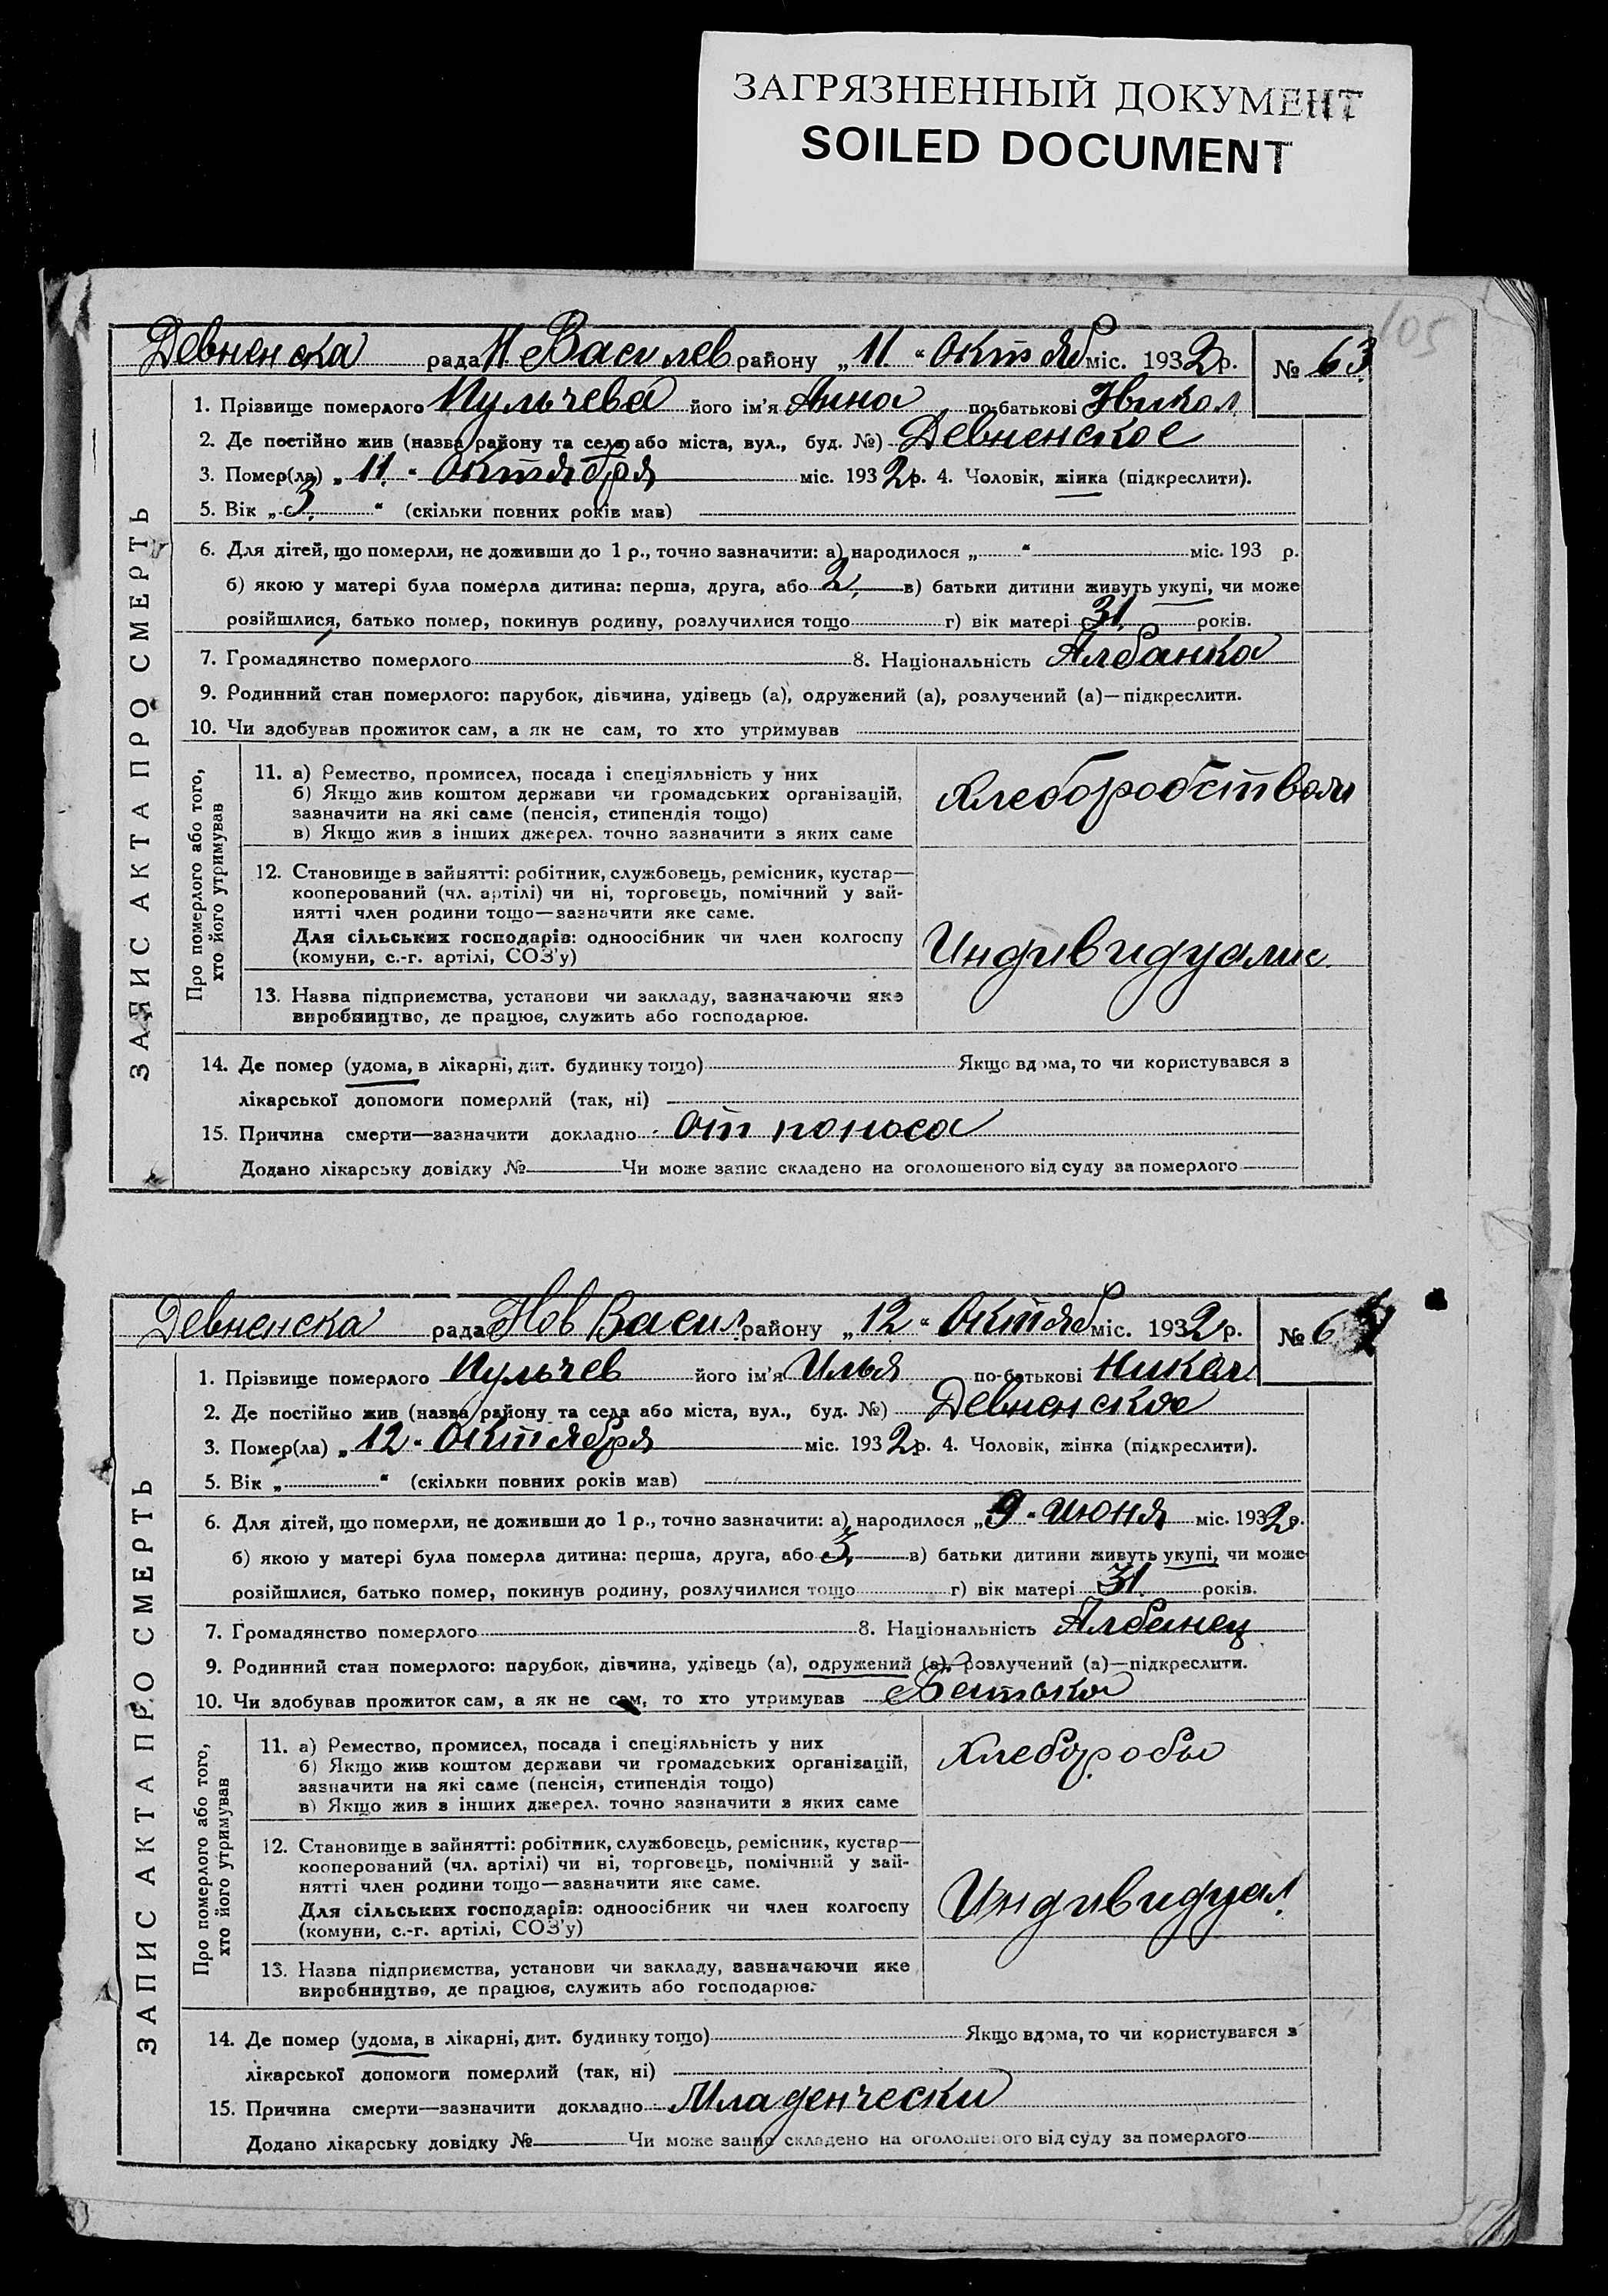 ЗАГРЯЗНЕННЫЙ ДОКУМЕНТ
SOILED DOCUMENT
105
Девненска рада Н Василев району „11“ октяб міс. 1932 р. № 63
1. Прізвище померлого Пульчева його ім'я Анна по-батькові Никол
2. Де постійно жив (назва району та села або міста, вул., буд. №) Девненское
3. Помер(ла) „11“ октября міс. 1932 р. 4. Чоловік, жінка (підкреслити).
5. Вік „3“ (скільки повних років мав)
6. Для дітей, що померли, не доживши до 1 р., точно зазначити: а) народилося „ “ міс. 193 р.
б) якою у матері була померла дитина: перша, друга, або 2, в) батьки дитини живуть укупі, чи може
розійшлися, батько помер, покинув родину, розлучилися тощо г) вік матері 31 років.
7. Громадянство померлого 8. Національність Албанка
9. Родинний стан померлого: парубок, дівчина, удівець (а), одружений (а), розлучений (а)—підкреслити.
10. Чи здобував прожиток сам, а як не сам, то хто утримував
ЗАПИС АКТА ПРО СМЕРТЬ
Про померлого або того,
хто його утримував
11. а) Ремество, промисел, посада і спеціяльність у них
б) Якщо жив коштом держави чи громадських організацій,
зазначити на які саме (пенсія, стипендія тощо)
в) Якщо жив з інших джерел. точно зазначити з яких саме
Хлеборобством
12. Становище в зайнятті: робітник, службовець, ремісник, кустар—
кооперований (чл. артілі) чи ні, торговець, помічний у зай-
нятті член родини тощо—зазначити яке саме.
Для сільських господарів: одноосібник чи член колгоспу
(комуни, с.-г. артілі, СОЗ'у)
Индивидуалис.
13. Назва підприємства, установи чи закладу, зазначаючи яке
виробництво, де працює, служить або господарює.
14. Де помер (удома, в лікарні, дит. будинку тощо) Якщо вдома, то чи користувався з
лікарської допомоги померлий (так, ні)
15. Причина смерти—зазначити докладно От поноса
Додано лікарську довідку № Чи може запис складено на оголошеного від суду за померлого
Девненска рада Нов Васил. району „12“ октяб міс. 1932 р. № 64
1. Прізвище померлого Пульчев його ім'я Илья по-батькові Никол
2. Де постійно жив (назва району та села або міста, вул., буд. №) Девненское
3. Помер(ла) „12“ октября міс. 1932 р. 4. Чоловік, жінка (підкреслити).
5. Вік „ “ (скільки повних років мав)
6. Для дітей, що померли, не доживши до 1 р., точно зазначити: а) народилося „9“ июня міс. 1932 р.
б) якою у матері була померла дитина: перша, друга, або 3, в) батьки дитини живуть укупі, чи може
розійшлися, батько помер, покинув родину, розлучилися тощо г) вік матері 31 років.
7. Громадянство померлого 8. Національність Албанец
9. Родинний стан померлого: парубок, дівчина, удівець (а), одружений (а), розлучений (а)—підкреслити.
10. Чи здобував прожиток сам, а як не сам, то хто утримував Батько
ЗАПИС АКТА ПРО СМЕРТЬ
Про померлого або того,
хто його утримував
11. а) Ремество, промисел, посада і спеціяльність у них
б) Якщо жив коштом держави чи громадських організацій,
зазначити на які саме (пенсія, стипендія тощо)
в) Якщо жив з інших джерел. точно зазначити з яких саме
Хлеборобы
12. Становище в зайнятті: робітник, службовець, ремісник, кустар—
кооперований (чл. артілі) чи ні, торговець, помічний у зай-
нятті член родини тощо—зазначити яке саме.
Для сільських господарів: одноосібник чи член колгоспу
(комуни, с.-г. артілі, СОЗ'у)
Индивидуал.
13. Назва підприємства, установи чи закладу, зазначаючи яке
виробництво, де працює, служить або господарює.
14. Де помер (удома, в лікарні, дит. будинку тощо) Якщо вдома, то чи користувався з
лікарської допомоги померлий (так, ні)
15. Причина смерти—зазначити докладно Младенчески
Додано лікарську довідку № Чи може запис складено на оголошеного від суду за померлого